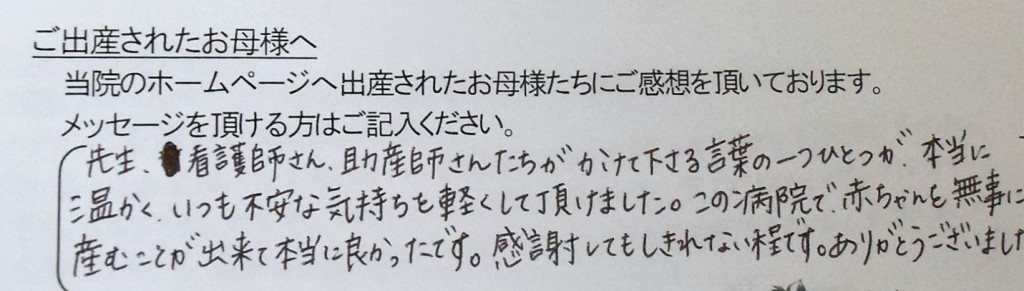 ご出産されたお母様へ
当院のホームページへ出産されたお母様たちにご感想を頂いております。
メッセージを頂ける方はご記入ください。
先生、看護師さん、助産師さんたちがかけて下さる言葉の一つひとつが、本当に
温かく、いつも不安な気持ちを軽くして頂けました。この病院で、赤ちゃんを無事に
産むことが出来て本当に良かったです。感謝してもしきれない程です。ありがとうございました